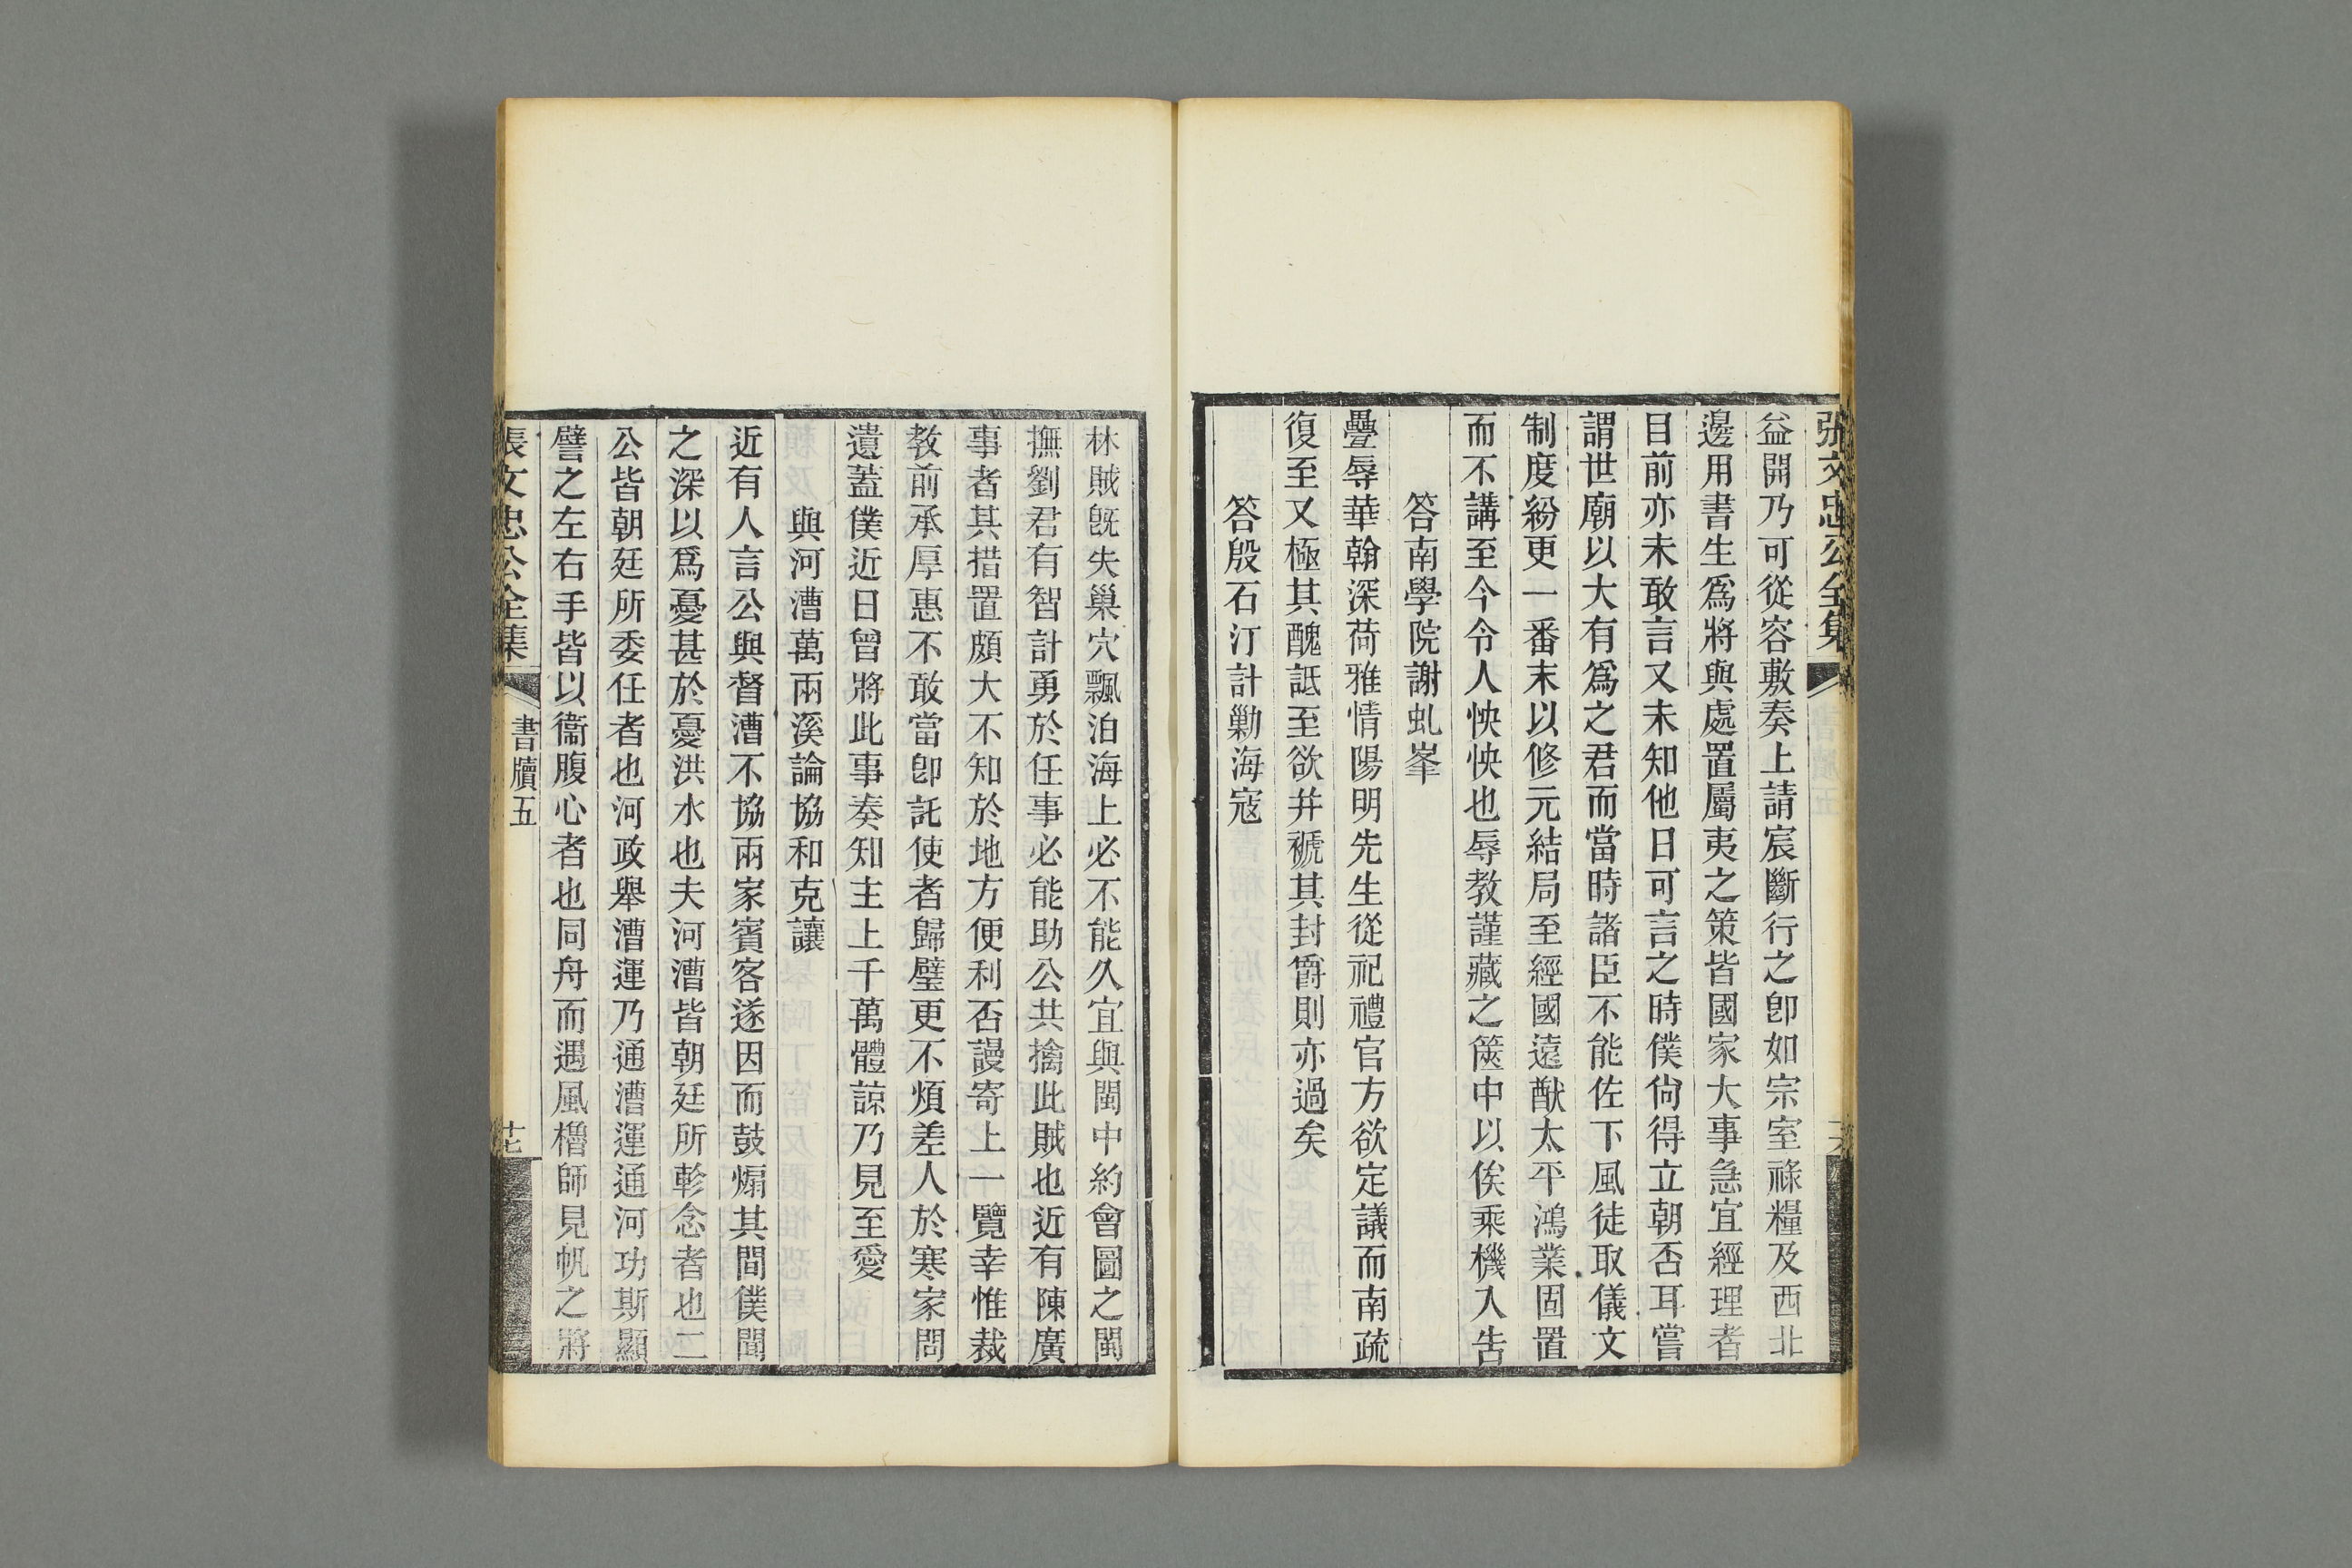 張文忠公全集
益開乃可從容敷奏上請宸斷行之卽如宗室祿糧及西北
邊用書生爲將與處置屬夷之策皆國家大事急宜經理者
目前亦未敢言又未知他日可言之時僕尙得立朝否耳嘗
謂世廟以大有爲之君而當時諸臣不能佐下風徒取儀文
制度紛更一番末以修元結局至經國遠猷太平鴻業固置
而不講至今令人怏怏也辱教謹藏之篋中以俟乘機入告
答南學院謝虬峯
疊辱華翰深荷雅情陽明先生從祀禮官方欲定議而南疏
復至又極其醜詆至欲并褫其封爵則亦過矣
答殷石汀計勦海寇
林賊旣失巢穴飄泊海上必不能久宜與閩中約會圖之閩
撫劉君有智計勇於任事必能助公共擒此賊也近有陳廣
事者其措置頗大不知於地方便利否謾寄上一覽幸惟裁
教前承厚惠不敢當卽託使者歸璧更不煩差人於寒家問
遺蓋僕近日曾將此事奏知主上千萬體諒乃見至愛
與河漕萬兩溪論協和克讓
近有人言公與督漕不協兩家賓客遂因而鼓煽其間僕聞
之深以爲憂甚於憂洪水也夫河漕皆朝廷所軫念者也二
公皆朝廷所委任者也河政舉漕運乃通漕運通河功斯顯
譬之左右手皆以衞腹心者也同舟而遇風櫓師見帆之將
張文忠公全集
書牘五
廿七